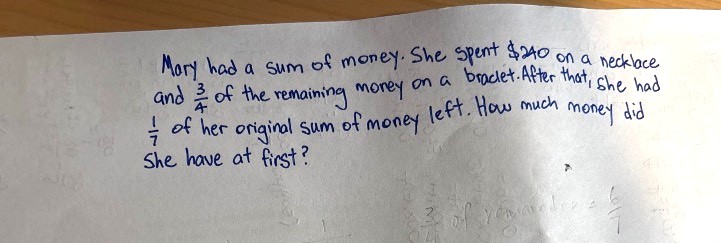 Mary had a sum of money. She spent $240 on a necklace
and 3/4 of the remaining money on a braclet. After that, she had
1/7 of her original sum of money left. How much money did
She have at first?